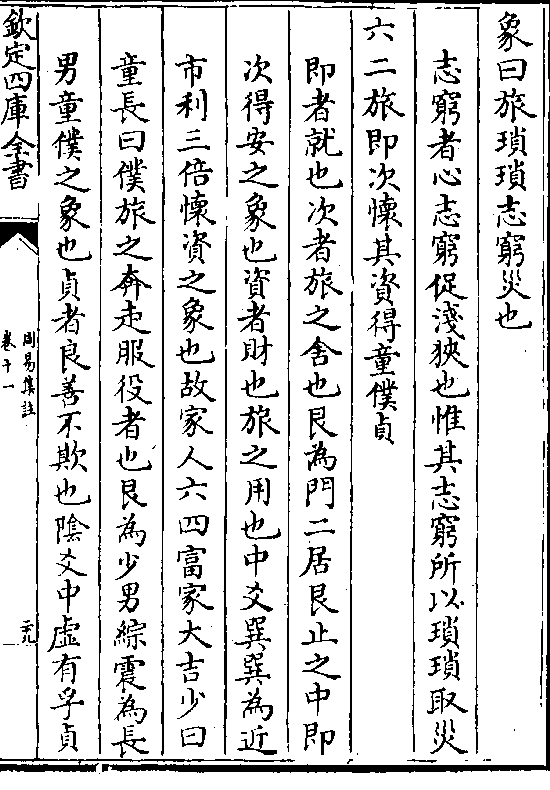 象曰旅瑣瑣志窮災也
志窮者心志窮促淺狹也惟其志窮所以瑣瑣取災
六二旅即次懷其資得童僕貞
即者就也次者旅之舍也艮為門二居艮止之中即
次得安之象也資者財也旅之用也中爻巽巽為近
市利三倍懷資之象也故家人六四富家大吉少曰
童長曰僕旅之奔走服役者也艮為少男綜震為長
男童僕之象也貞者良善不欺也陰爻中虛有孚貞
欽定四庫全書
周易集註
卷十一